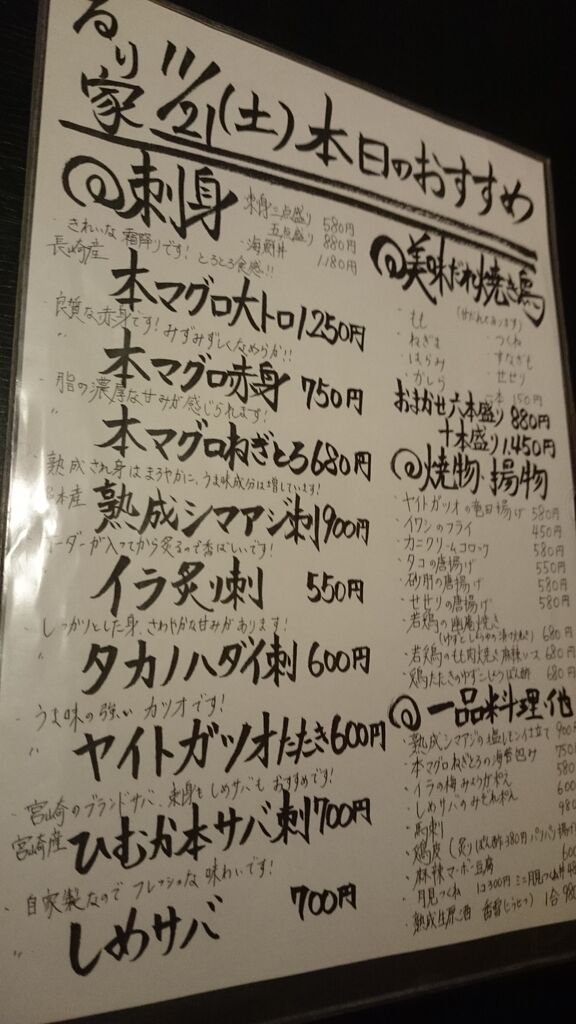 るり家 11/21(土) 本日のおすすめ
@刺身
刺身三点盛り 580円
五点盛り 880円
・海鮮丼 1,180円
・きれいな霜降りです! とろとろ食感!!
長崎産 本マグロ大トロ 1250円
・良質な赤身です! みずみずしくなめらか!!
〃 本マグロ赤身 750円
・脂の濃厚な甘みが感じられます!
〃 本マグロねぎとろ 680円
・熟成され身はまろやかに、うま味成分は増しています!
本産 熟成シマアジ刺 900円
ーダーが入ってから炙るので香ばしいです!
イラ炙り刺 550円
・しっかりとした身、さわやかな甘みがあります!
タカノハダイ刺 600円
・うま味の強いカツオです!
〃 ヤイトガツオたたき 600円
・宮崎のブランドサバ、刺身もしめサバもおすすめです!
宮崎産 ひむか本サバ刺 700円
・自家製なのでフレッシュな味わいです!
〃 しめサバ 700円
@美味だれ焼き鳥
・もも
・ねぎま ・つくね
・はらみ ・すなぎも
・かしら ・せせり
本 150円
おまかせ六本盛り 880円
十本盛り 1,450円
@焼物・揚物
・ヤイトガツオの竜田揚げ 580円
・イワシのフライ 450円
・カニクリームコロッケ 580円
・タコの唐揚げ 550円
・砂肝の唐揚げ 580円
・せせりの唐揚げ 580円
・若鶏の幽庵焼き
680円
・若鶏のもも肉焼き 麻辣ソース 680円
・鶏たたきのゆずこしょうぽん酢 680円
@一品料理・他
・熟成シマアジの塩レモン仕立て 900
・本マグロねぎとろの海苔包み 750
・イラの梅みょうがポン 600
・しめサバのみぞれポン
・馬刺 980
・鶏皮 (炙りぽん酢 380円 パリパリ揚げ
・麻辣マーボー豆腐 600
・月見つくね 1コ300円 ミニ月見つくね丼
・熟成生原酒 1合 980